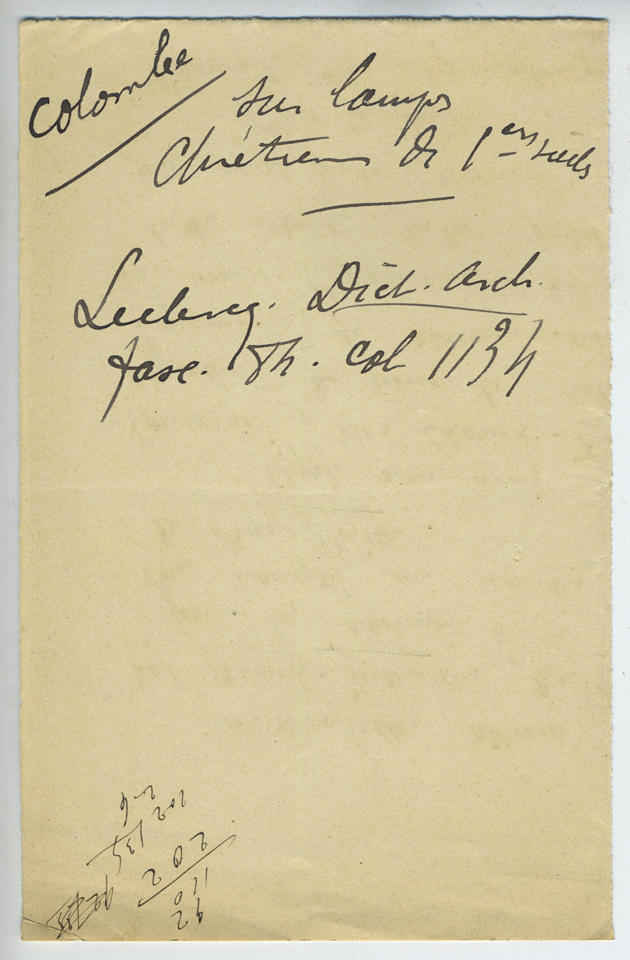 colombe
sur lamps
Chrétiens de 1ers siècles
Leclercq. Dict. Arch.
fasc. Th. col 1134
92
110
202